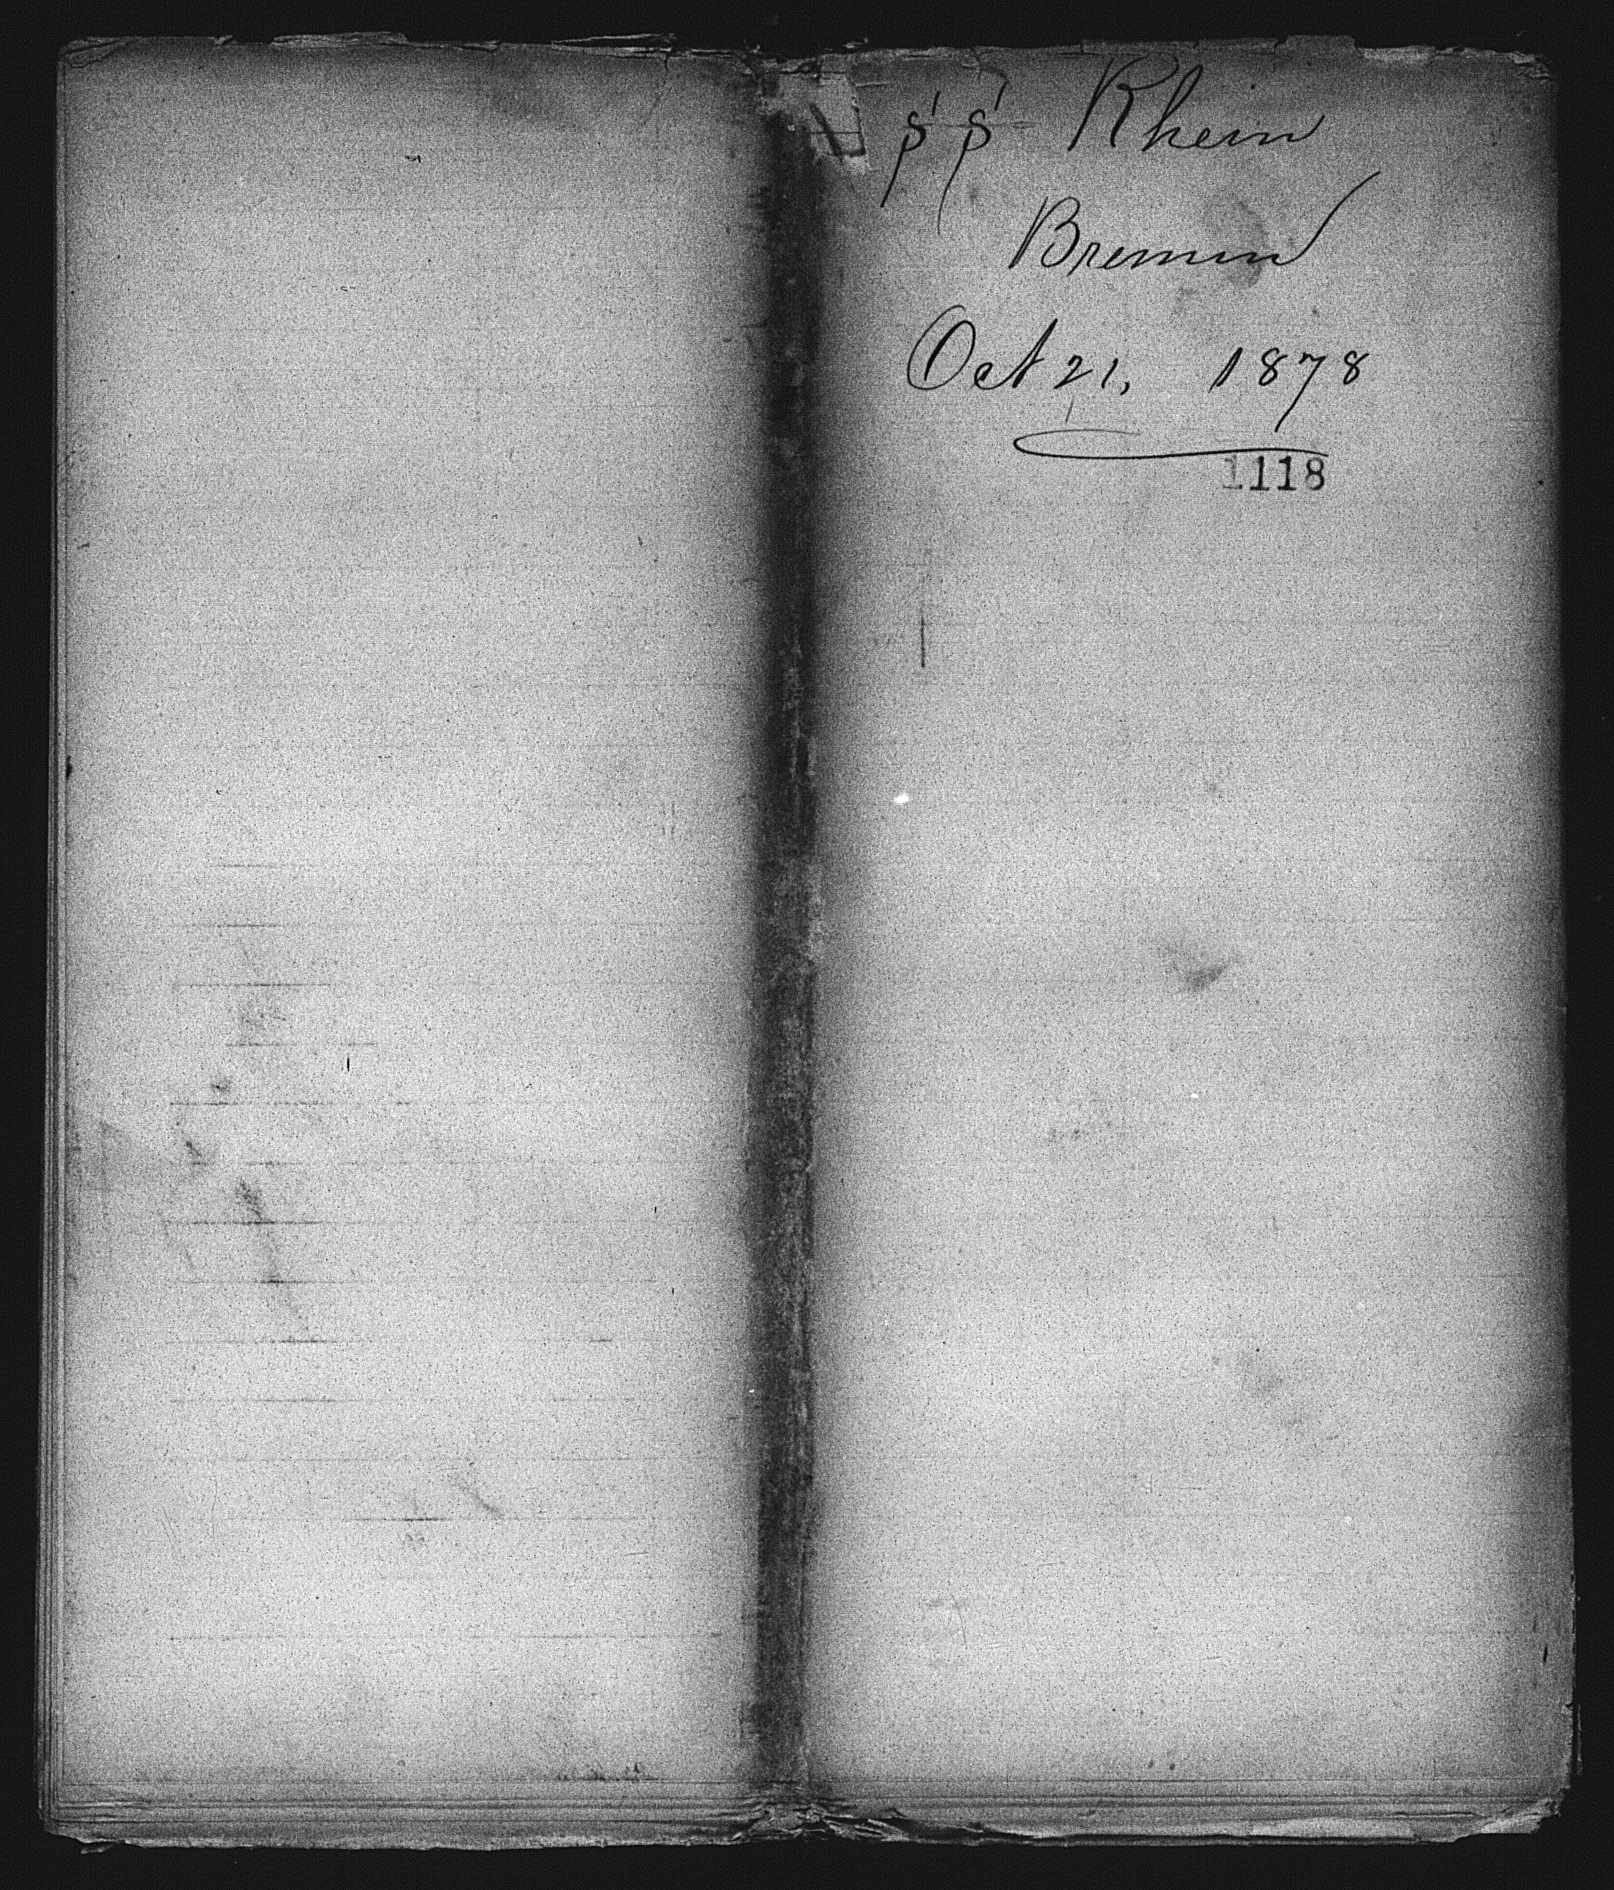 S'S' Rhein
Bremen
Oct 21, 1878
1118